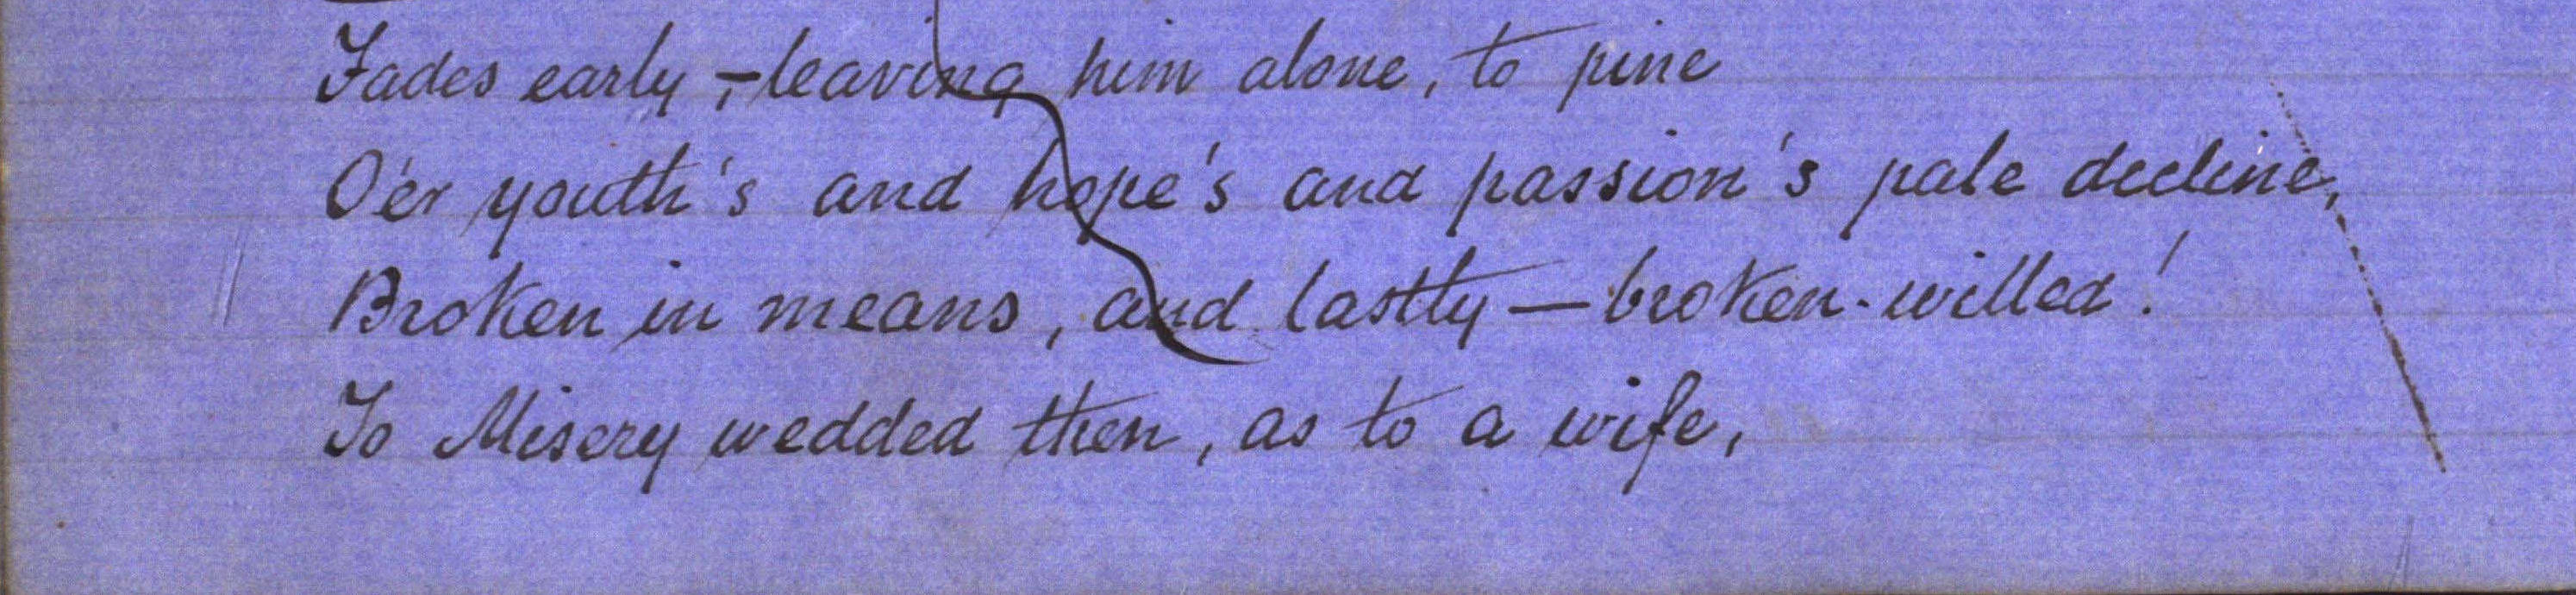 Fades early,—leaving him alone, to pine
O'er youth's and hope's and passion's pale decline,
Broken in means, and lastly—broken-willed!
To Misery wedded then, as to a wife,